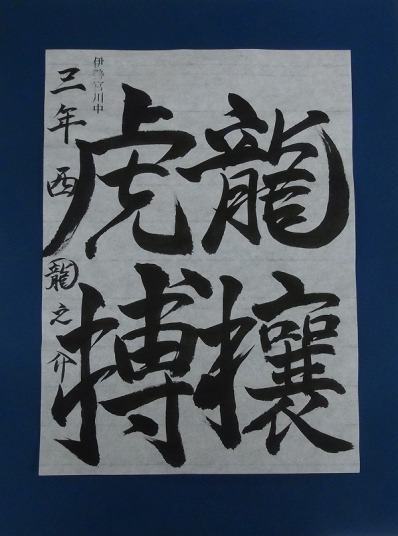 龍攘
虎搏
伊勢宮川中
三年 西 龍之介